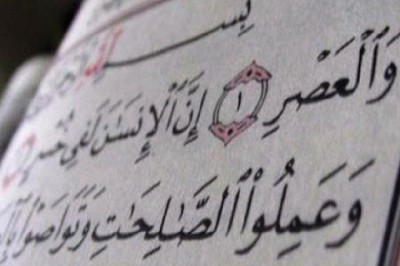 بِسْمِ
وَٱلْعَصْرِ ١ إِنَّ ٱلْإِنسَٰنَ لَفِى خُسْرٍ
وَعَمِلُوا۟ ٱلصَّٰلِحَٰتِ وَتَوَاصَوْا۟